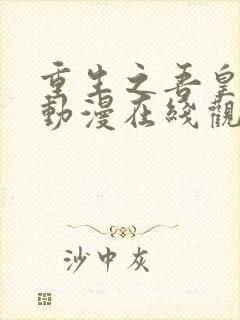 重生之吾皇
動漫在綫觀
沙中灰